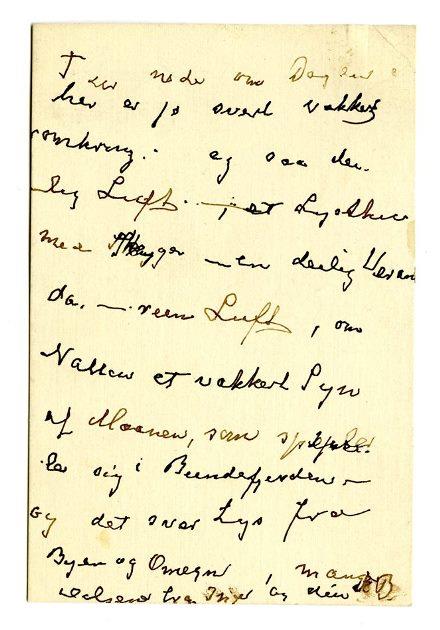 I er ude om Dagen
her er jo svert vakkert
omkring. og saa dei-
lig Luft. — , et Lysthus
med Skygge — en deilig Veran
da. — reen Luft, om
Natten et vakkert Syn
af Maanen, som speiler
sig i Bundefjorden —
og det svar Lys fra
Byen og Omegn, mange